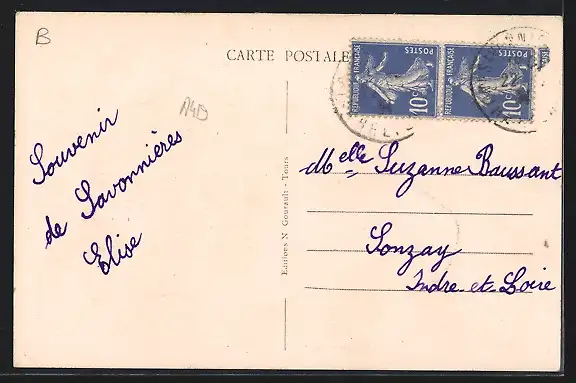 B
CARTE POSTALE
RÉPUBLIQUE FRANÇAISE
POSTES
10c
RÉPUBLIQUE FRANÇAISE
POSTES
10c
A4D
Souvenir
de Savonnières
Elise
Editions N. Gourault - Tours
Melle Suzanne Baussant
Sonzay
Indre-et-Loire